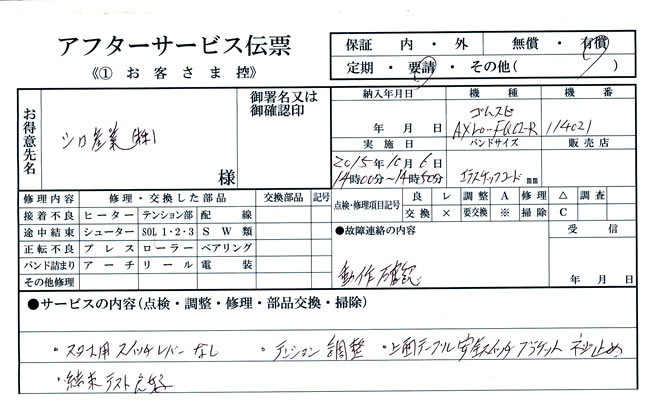 アフターサービス伝票
《① お客さま控》
保証 内・外 無償・有償
定期・要請・その他( )
お得意先名
シロ産業(株)
様
御署名又は
御確認印
納入年月日 機種 機番
年 月 日
ゴムスピ
114021
実施日 バンドサイズ 販売店
2015年10月6日
14時00分～14時50分
ゴラスチックコード mm
修理内容 修理・交換した部品 交換部品 記号
接着不良 ヒーター テンション部 配線
途中結束 シューター SOL1・2・3 SW類
正転不良 プレス ローラー ベアリング
バンド詰まり アーチ リール 電装
その他修理
点検・修理項目記号
良 レ 調整 A 修理 △ 調査
交換 × 要交換 ※ 掃除 C
●故障連絡の内容 受信
動作確認
年 月 日
●サービスの内容(点検・調整・修理・部品交換・掃除)
・スタート用スイッチレバーなし ・テンション調整 ・上面テーブル安全スイッチブラケットネジ止め
・結束テスト